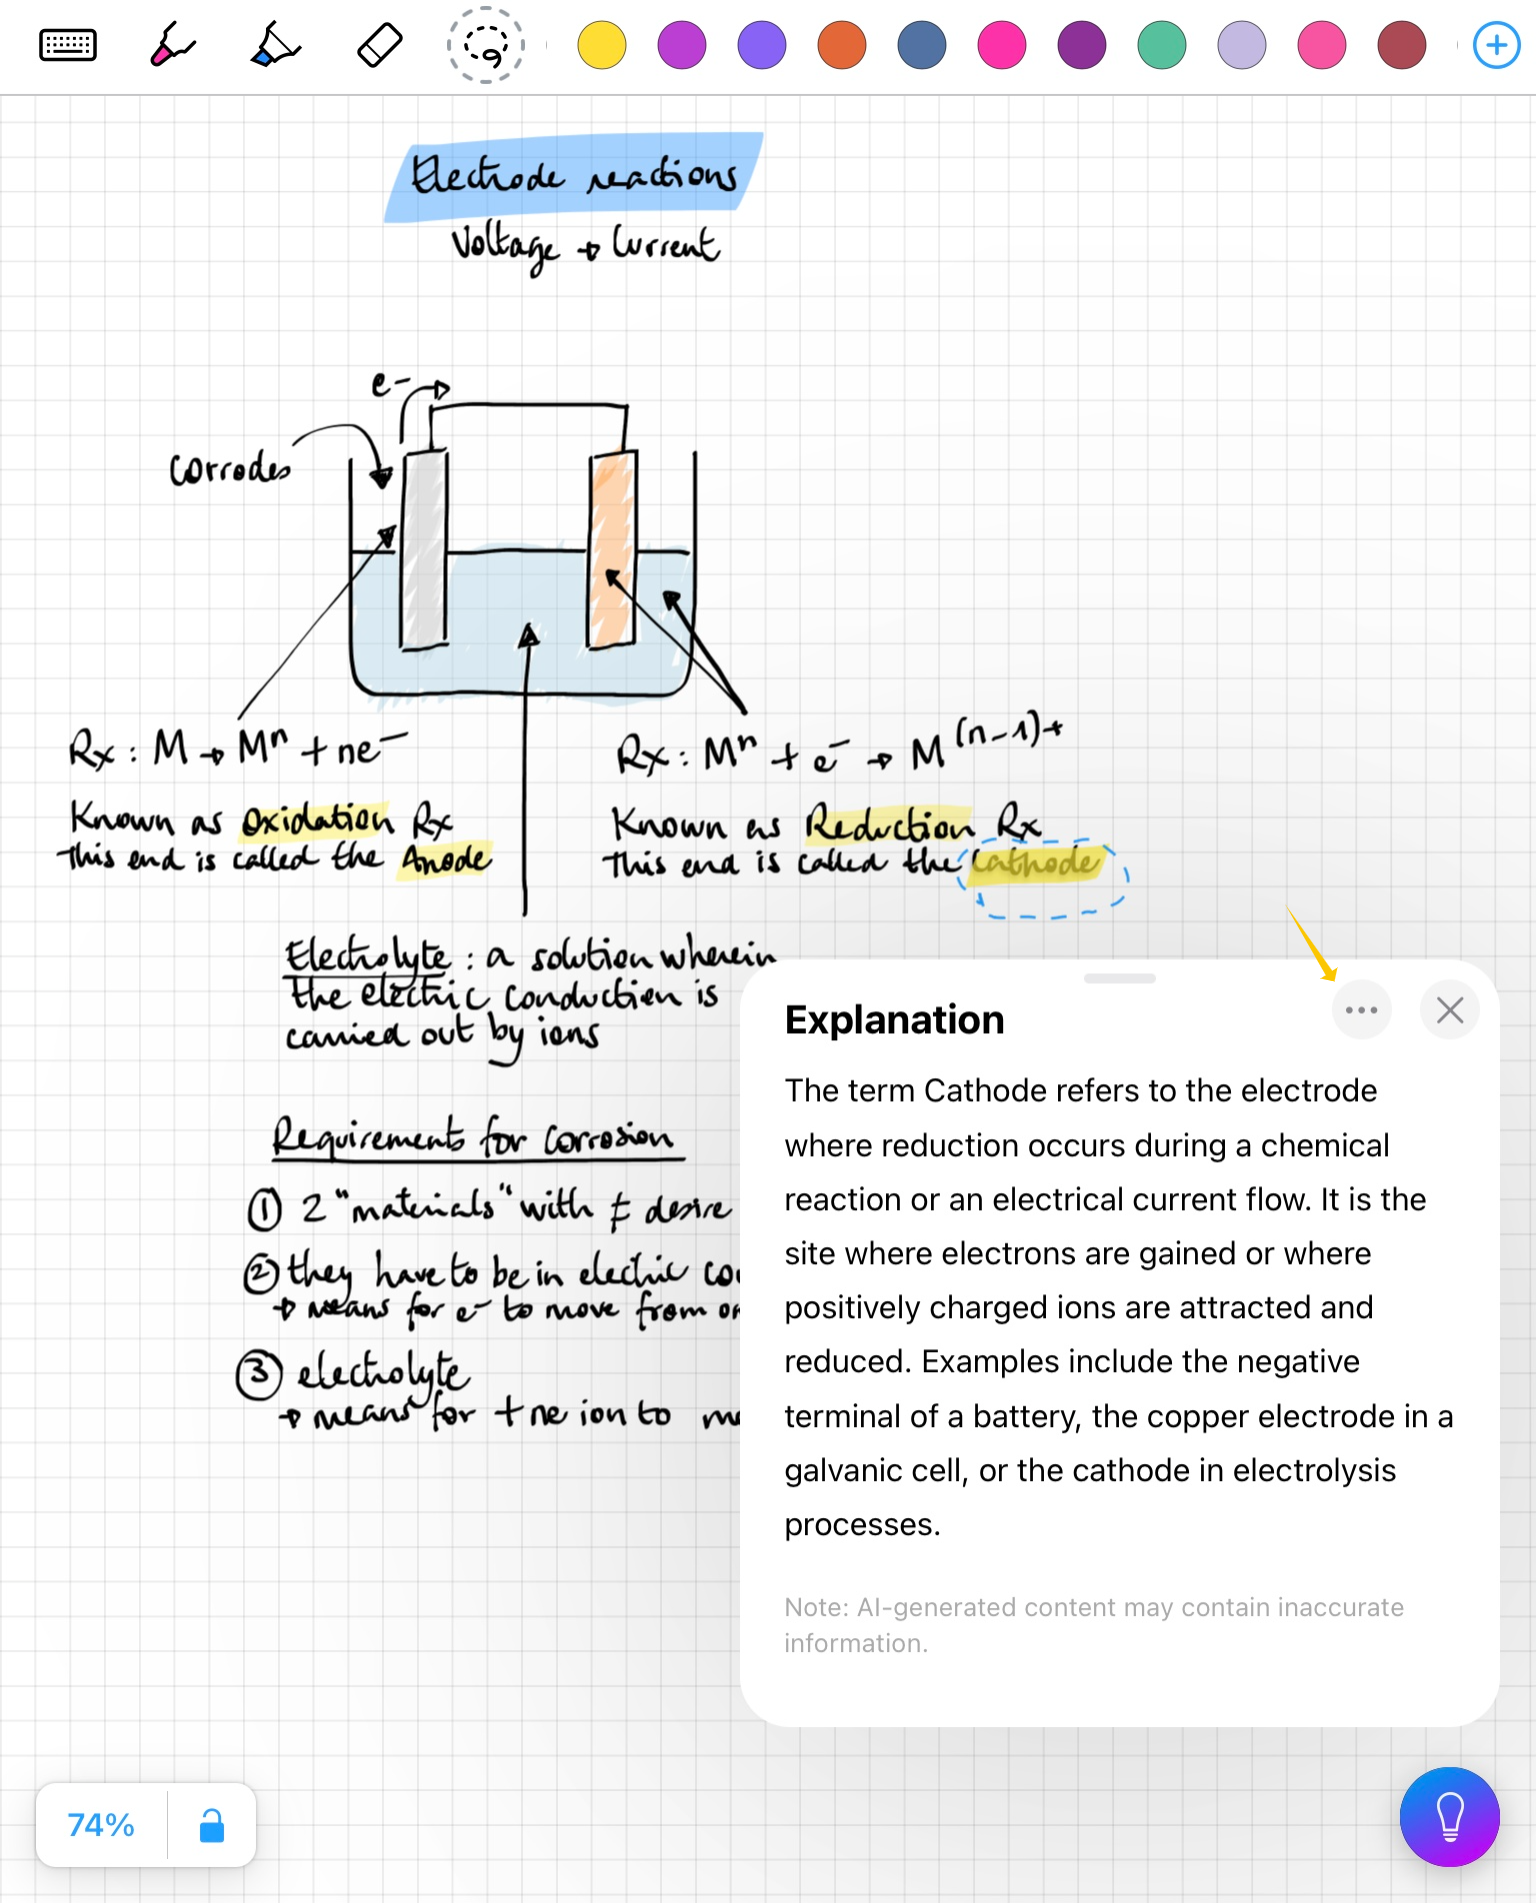 Electrode reactions
Voltage → Current
e-
corrodes
Rx : M → Mⁿ + ne⁻
Known as Oxidation Rx
This end is called the Anode
Rx : Mⁿ + e⁻ → M⁽ⁿ⁻¹⁾⁺
Known as Reduction Rx
This end is called the Cathode
Electrolyte : a solution wherein
the electric conduction is
carried out by ions
Requirements for corrosion
① 2 "materials" with ≠ desire
② they have to be in electric co
→ means for e⁻ to move from or
③ electrolyte
→ means for +ne ion to mo
Explanation
The term Cathode refers to the electrode
where reduction occurs during a chemical
reaction or an electrical current flow. It is the
site where electrons are gained or where
positively charged ions are attracted and
reduced. Examples include the negative
terminal of a battery, the copper electrode in a
galvanic cell, or the cathode in electrolysis
processes.
Note: AI-generated content may contain inaccurate
information.
74%